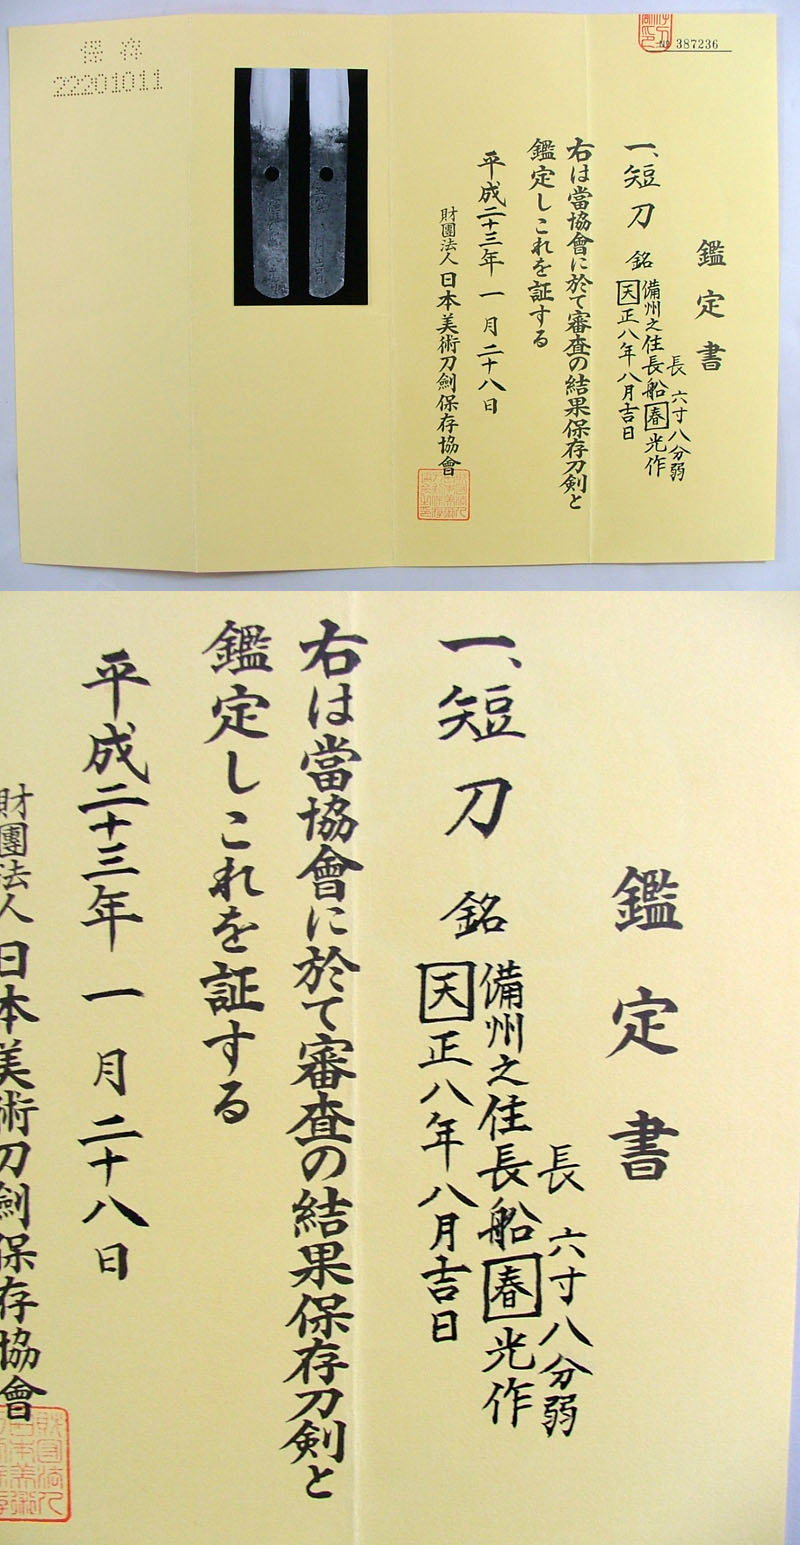 保存
22201011
№ 387236
鑑定書
一、短刀 銘
長 六寸八分弱
備州之住長船春光作
天正八年八月吉日
右は當協會に於て審査の結果保存刀剣と
鑑定しこれを証する
平成二十三年 一月二十八日
財團法人 日本美術刀劍保存協會
鑑定書
一、短刀 銘
長 六寸八分弱
備州之住長船春光作
天正八年八月吉日
右は當協會に於て審査の結果保存刀剣と
鑑定しこれを証する
平成二十三年 一月二十八日
財團法人 日本美術刀劍保存協會